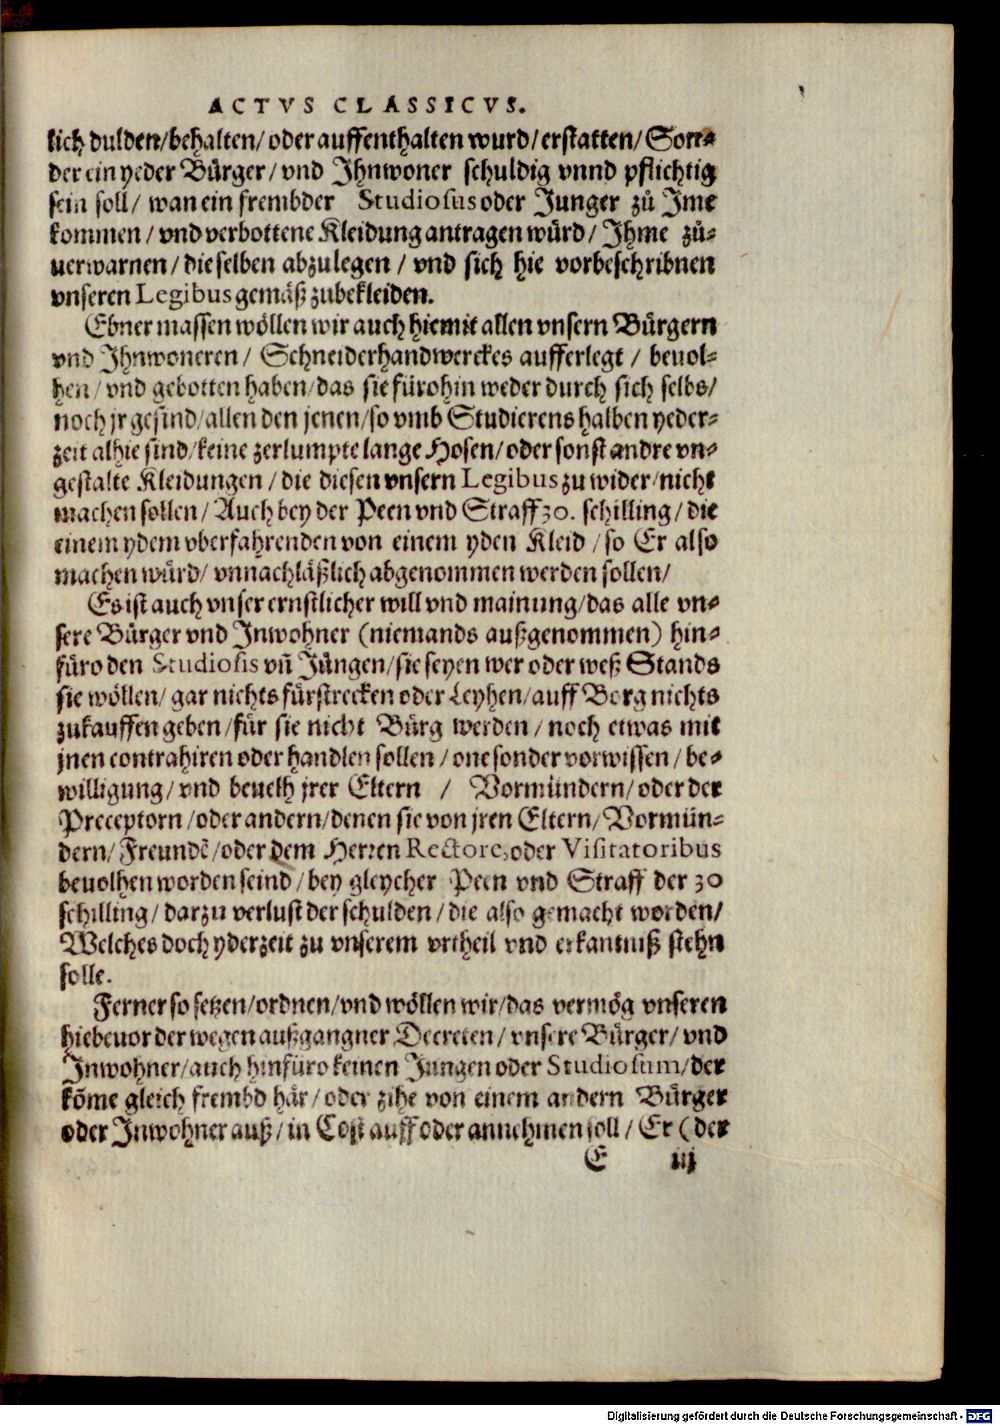 ACTVS CLASSICVS.
lich dulden/behalten/oder auffenthalten wurd/erstatten/Son-
der ein yeder Bürger/vnd Ihnwoner schuldig vnnd pflichtig
sein soll/ wan ein frembder Studiosus oder Junger zů Ime
kommen/vnd verbottene Kleidung antragen würd/Ihme zů-
uerwarnen/dieselben abzulegen/vnd sich hie vorbeschribnen
vnseren Legibus gemäß zubekleiden.
Ebner massen wöllen wir auch hiemit allen vnsern Bürgern
vnd Ihnwoneren/ Schneiderhandwerckes aufferlegt/ beuol-
hen/vnd gebotten haben/das sie fürohin weder durch sich selbs/
noch jr gesind/allen den jenen/so vmb Studierens halben yeder-
zeit alhie sind/keine zerlumpte lange Hosen/oder sonst andre vn-
gestalte Kleidungen/die diesen vnsern Legibus zu wider/nicht
machen sollen/ Auch bey der Peen vnd Straff 30. schilling/die
einem ydem vberfahrenden von einem yden Kleid/so Er also
machen würd/vnnachläßlich abgenommen werden sollen/
Es ist auch vnser ernstlicher will vnd mainung/das alle vn-
sere Bürger vnd Inwohner (niemands außgenommen) hin-
füro den Studiosis vñ Jüngen/sie seyen wer oder weß Stands
sie wöllen/gar nichts fürstrecken oder Leyhen/auff Borg nichts
zukauffen geben/für sie nicht Bürg werden/noch etwas mit
jnen contrahiren oder handlen sollen/one sonder vorwissen/be-
willigung/vnd beuelh jrer Eltern / Vormündern/oder der
Preceptorn/oder andern/denen sie von jren Eltern/Vormün-
dern/Freundẽ/oder dem Herren Rectore, oder Visitatoribus
beuolhen worden seind/bey gleycher Peen vnd Straff der 30
schilling/darzu verlust der schulden/die also gemacht worden/
Welches doch yderzeit zu vnserem vrtheil vnd erkantniß stehn
solle.
Ferner so setzen/ordnen/vnd wöllen wir/das vermög vnseren
hiebeuor der wegen außgangner Decreten/vnsere Bürger/vnd
Inwohner/auch hinfüro keinen Jungen oder Studiosum/der
kõme gleich frembd här/oder zihe von einem andern Bürger
oder Inwohner auß/in Cost auff oder annehmen soll/ Er (der
E iij
Digitalisierung gefördert durch die Deutsche Forschungsgemeinschaft - DFG